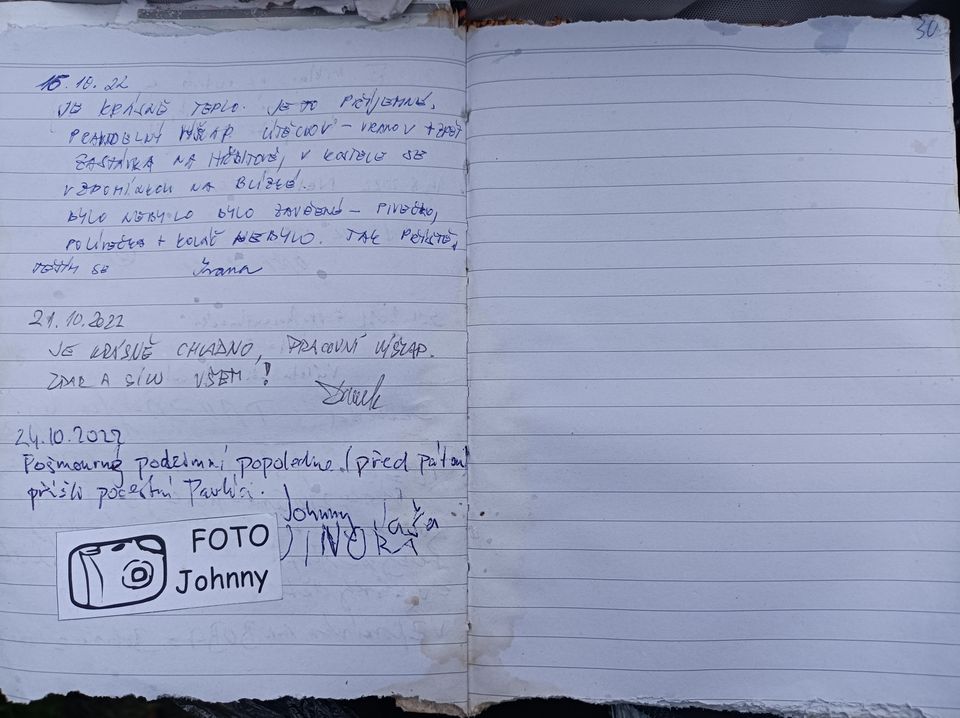 30
15.10.22
JE KRÁSNĚ TEPLO. JE TO PŘÍJEMNÉ,
PRAVIDELNÝ VÝŠLAP ÚTĚCHOV – VRANOV + ZPĚT
ZASTÁVKA NA HŘBITOVĚ, V KOSTELE SE
VZPOMÍNKOU NA BLÍZKÉ.
BYLO NEBYLO BYLO ZAVŘENÉ – PIVEČKO,
POLÍVEČKA + KOLÁČ NEBYLO. TAK PŘÍŠTĚ,
TĚŠÍM SE Ivana
21.10.2022
JE KRÁSNĚ CHLADNO, PRACOVNÍ VÝŠLAP.
ZDAR A SÍLU VŠEM!
24.10.2022
Pošmourné podzimní popoledne (před pátou)
přišli počestní
Johnny Jáša
JINORA
FOTO
Johnny